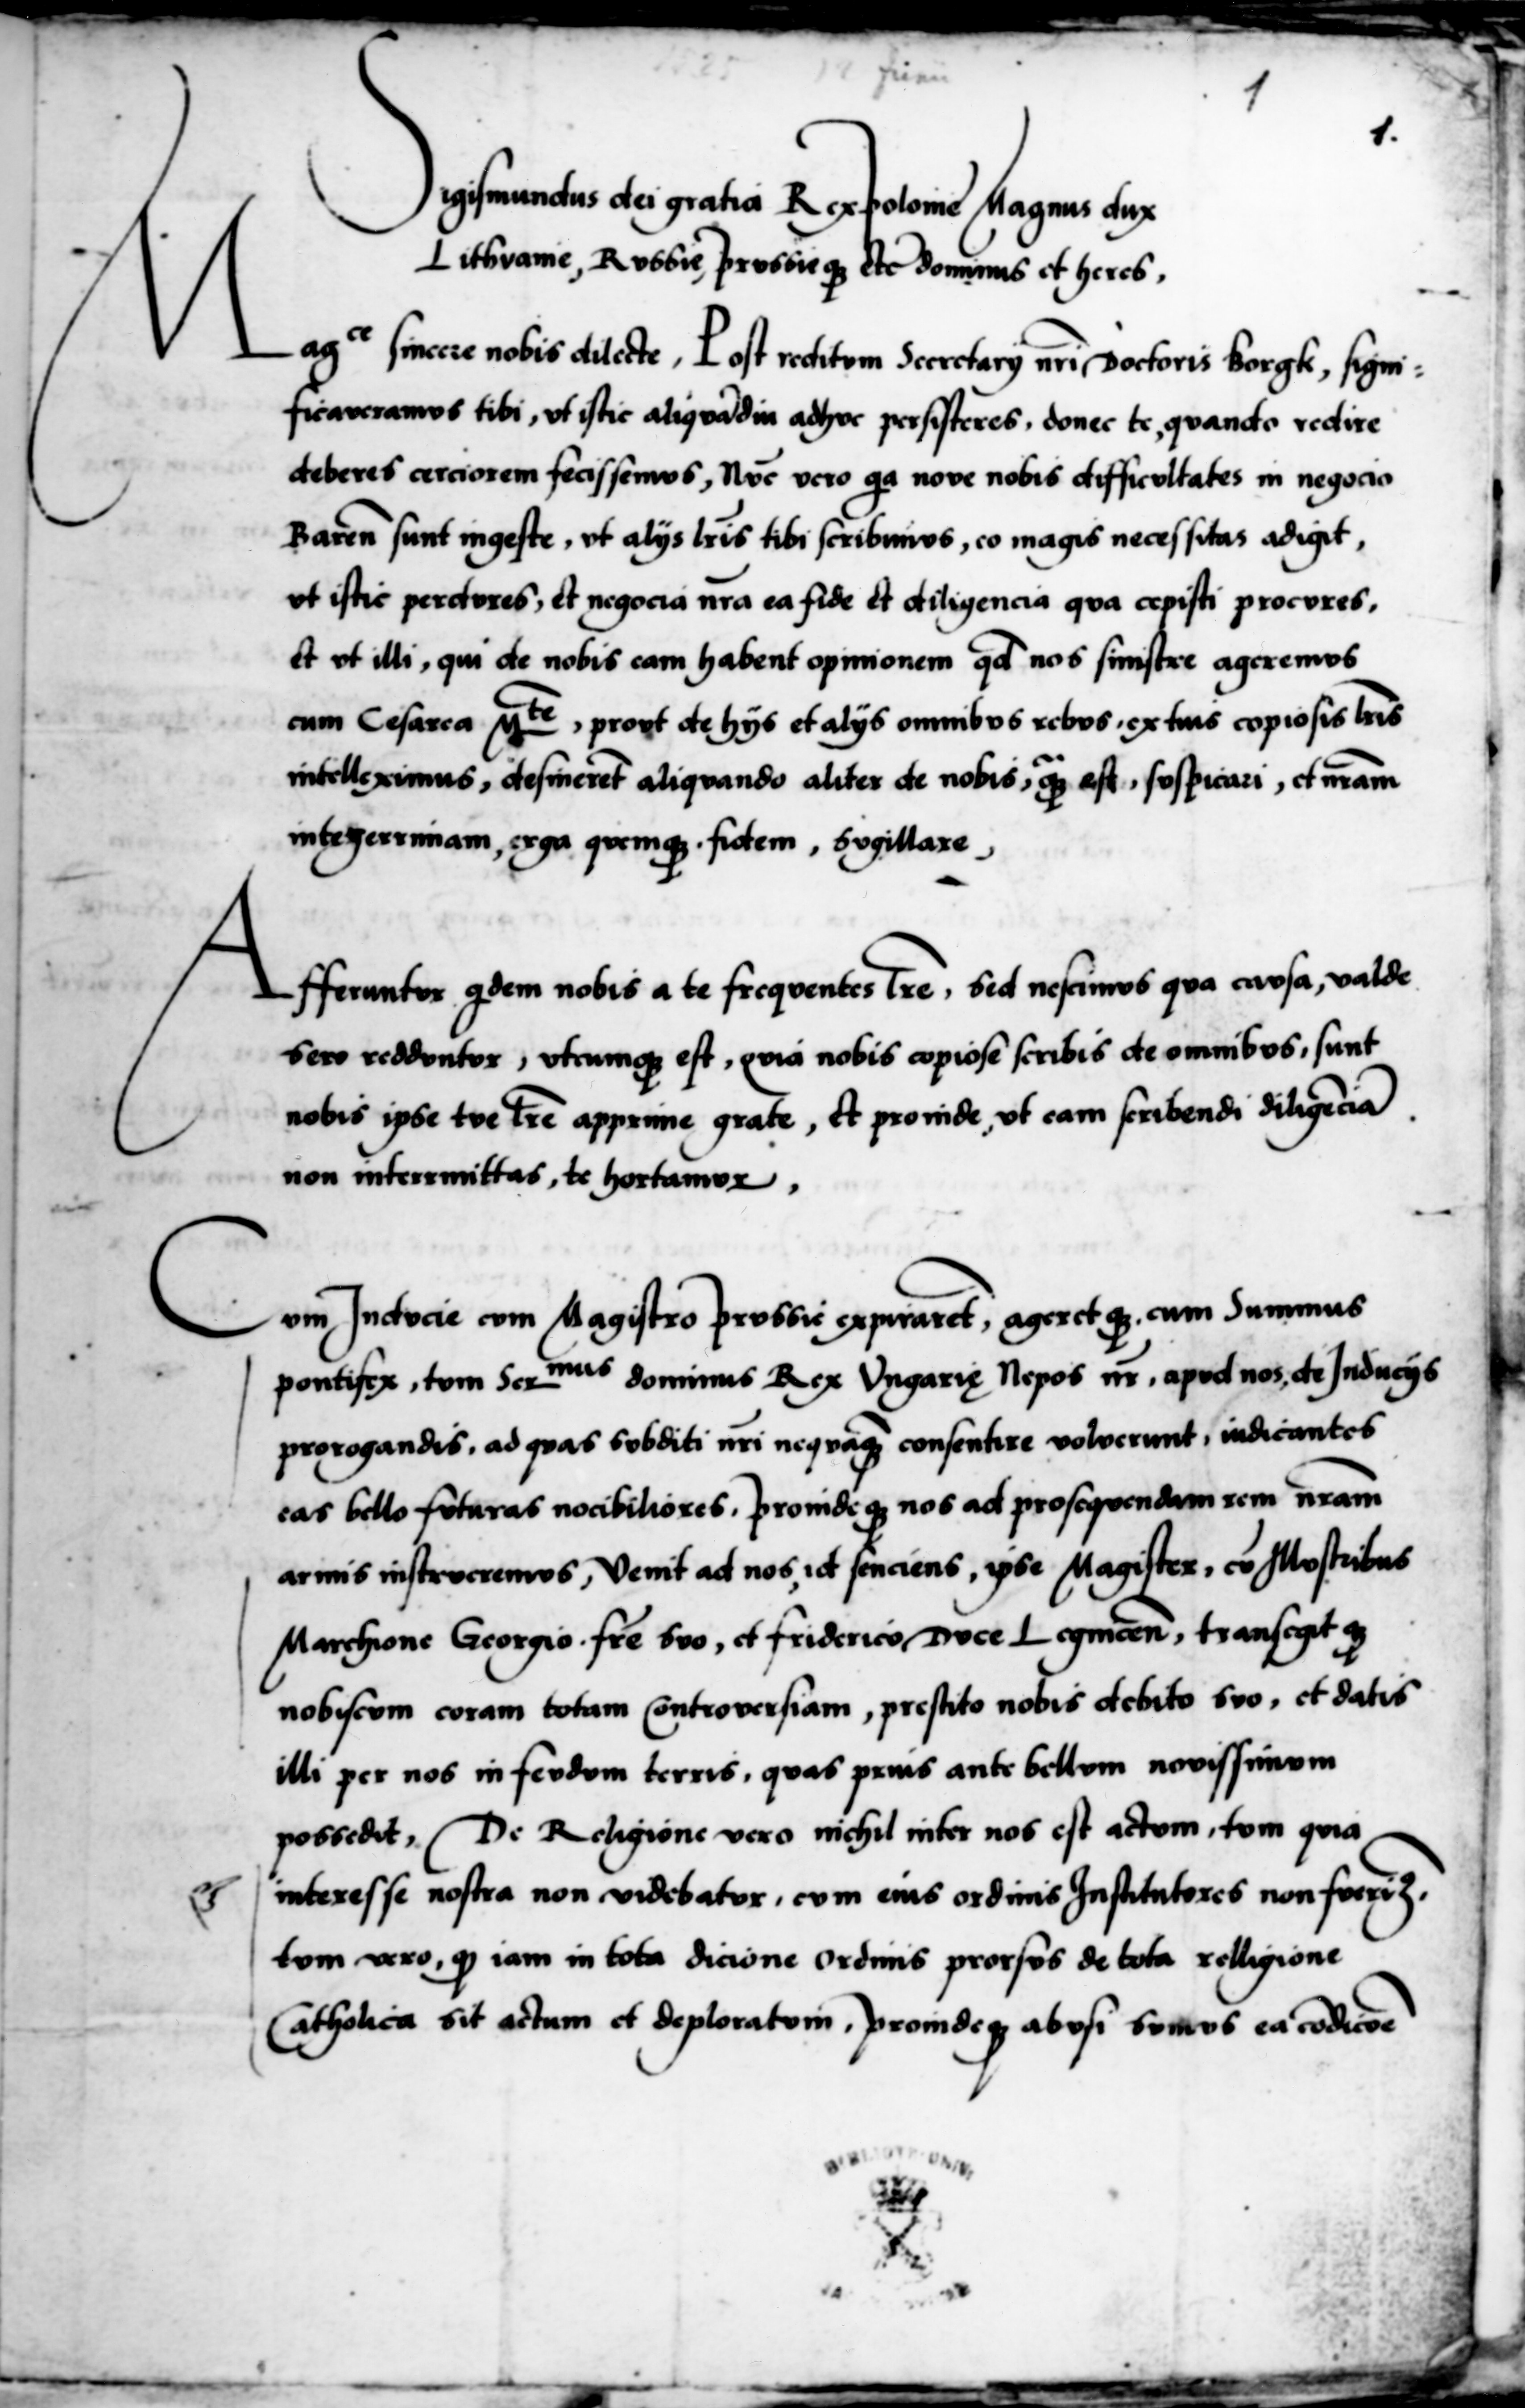 1
1.
Sigismundus dei gratia Rex polonie Magnus dux
Lithvanie, Rvssie, prvssieq3 etc dominus et heres,
Magce sincere nobis dilecte, Post reditvm Secretarij nr̃i Doctoris Borgk, signi:
ficaveramvs tibi, vt istic aliqvãdiu adhvc persisteres, donec te, qvando redire
deberes cerciorem fecissemvs, Nvc̃ vero qa nove nobis difficvltates in negocio
Bareñ sunt ingeste, vt alijs lr̃is tibi scribimvs, eo magis necessitas adigit,
vt istic perdvres, et negocia nr̃a ea fide et diligencia qva cepisti procvres,
et vt illi, qui de nobis eam habent opinionem qd̃ nos sinistre ageremvs
cum Cesarea Mte, provt de hijs et alijs omnibvs rebvs, ex tuis copiosis lr̃is
intelleximus, desinerẽt aliqvando aliter de nobis, q̃3 est, svspicari, et nr̃am
integerrimam, erga qvemq3 fidem, svgillare,
Afferuntvr qdem nobis a te freqventes lr̃e, sed nescimvs qva cavsa, valde
sero reddvntvr, vtcumq3 est, qvia nobis copiose scribis de omnibvs, sunt
nobis ipse tve lr̃e apprime grate, et proinde, vt eam scribendi diligẽcia
non interrmittas, te hortamvr,
Cvm Indvcie cvm Magistro prvssie expirarẽt, ageretq3 cum Summus
pontifex, tvm Sermus dominus Rex Vngarię Nepos nr̃, apvd nos, de Inducijs
prorogandis, ad qvas svbditi nr̃i neqvãq3 consentire volverunt, iudicantes
eas bello fvturas nocibiliores, proindeq3 nos ad proseqvendam rem nr̃am
armis instrveremvs, Venit ad nos, id senciens, ipse Magister, cũ Illvstribus
Marchione Georgio fr̃e svo, et friderico Dvce Legniceñ, transegitq3
nobiscvm coram totam Controversiam, prestito nobis debito svo, et datis
illi per nos in fevdvm terris, qvas prius ante bellvm novissimvm
possedit, De Religione vero nichil inter nos est actvm, tvm qvia
interesse nostra non videbatvr, cvm eius ordinis Institutores non fverim9,
tvm vero, q3 iam in tota dicione Ordinis prorsvs de tota relligione
Catholica sit actum et deploratvm, proindeq3 abvsi svmvs ea cõdicõe